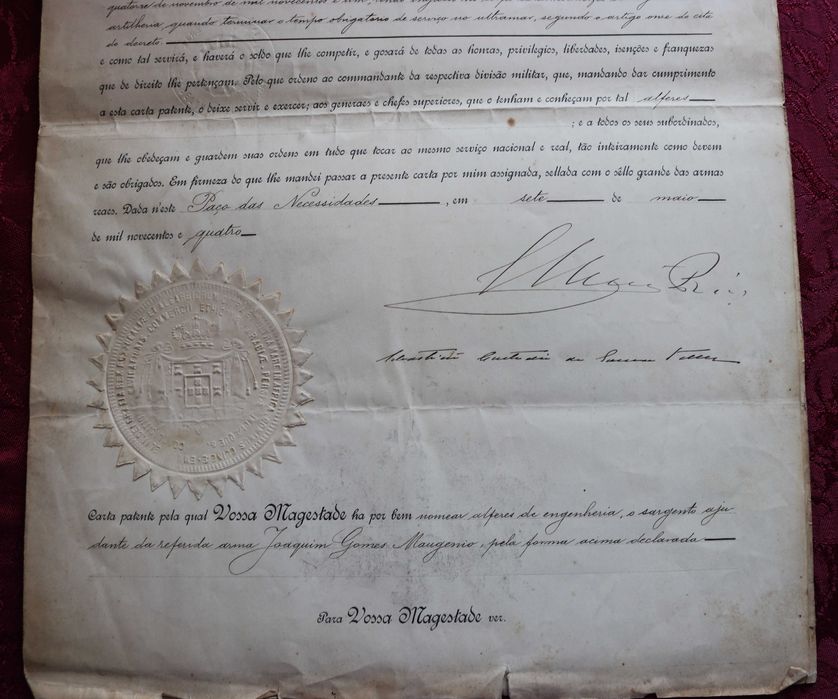 quatorse de novembro de mil novecentos e um,
artilheria, quando terminar o tempo obrigatorio de serviço no ultramar, segundo o artigo onze do cita
do decreto.
e como tal servirá, e haverá o soldo que lhe competir, e gosará de todas as honras, privilegios, liberdades, isenções e franquezas
que de direito lhe pertençam. Pelo que ordeno ao commandante da respectiva divisão militar, que, mandando dar cumprimento
a esta carta patente, o deixe servir e exercer; aos generaes e chefes superiores, que o tenham e conheçam por tal alferes
; e a todos os seus subordinados,
que lhe obedeçam e guardem suas ordens em tudo que tocar ao mesmo serviço nacional e real, tão inteiramente como devem
e são obrigados. Em firmeza do que lhe mandei passar a presente carta por mim assignada, sellada com o sêllo grande das armas
reaes. Dada n'este Paço das Necessidades, em sete de maio
de mil novecentos e quatro
Carta patente pela qual Vossa Magestade ha por bem nomear alferes de engenheria, o sargento aju-
dante da referida arma Joaquim Gomes Maugenio, pela forma acima declarada
Para Vossa Magestade ver.